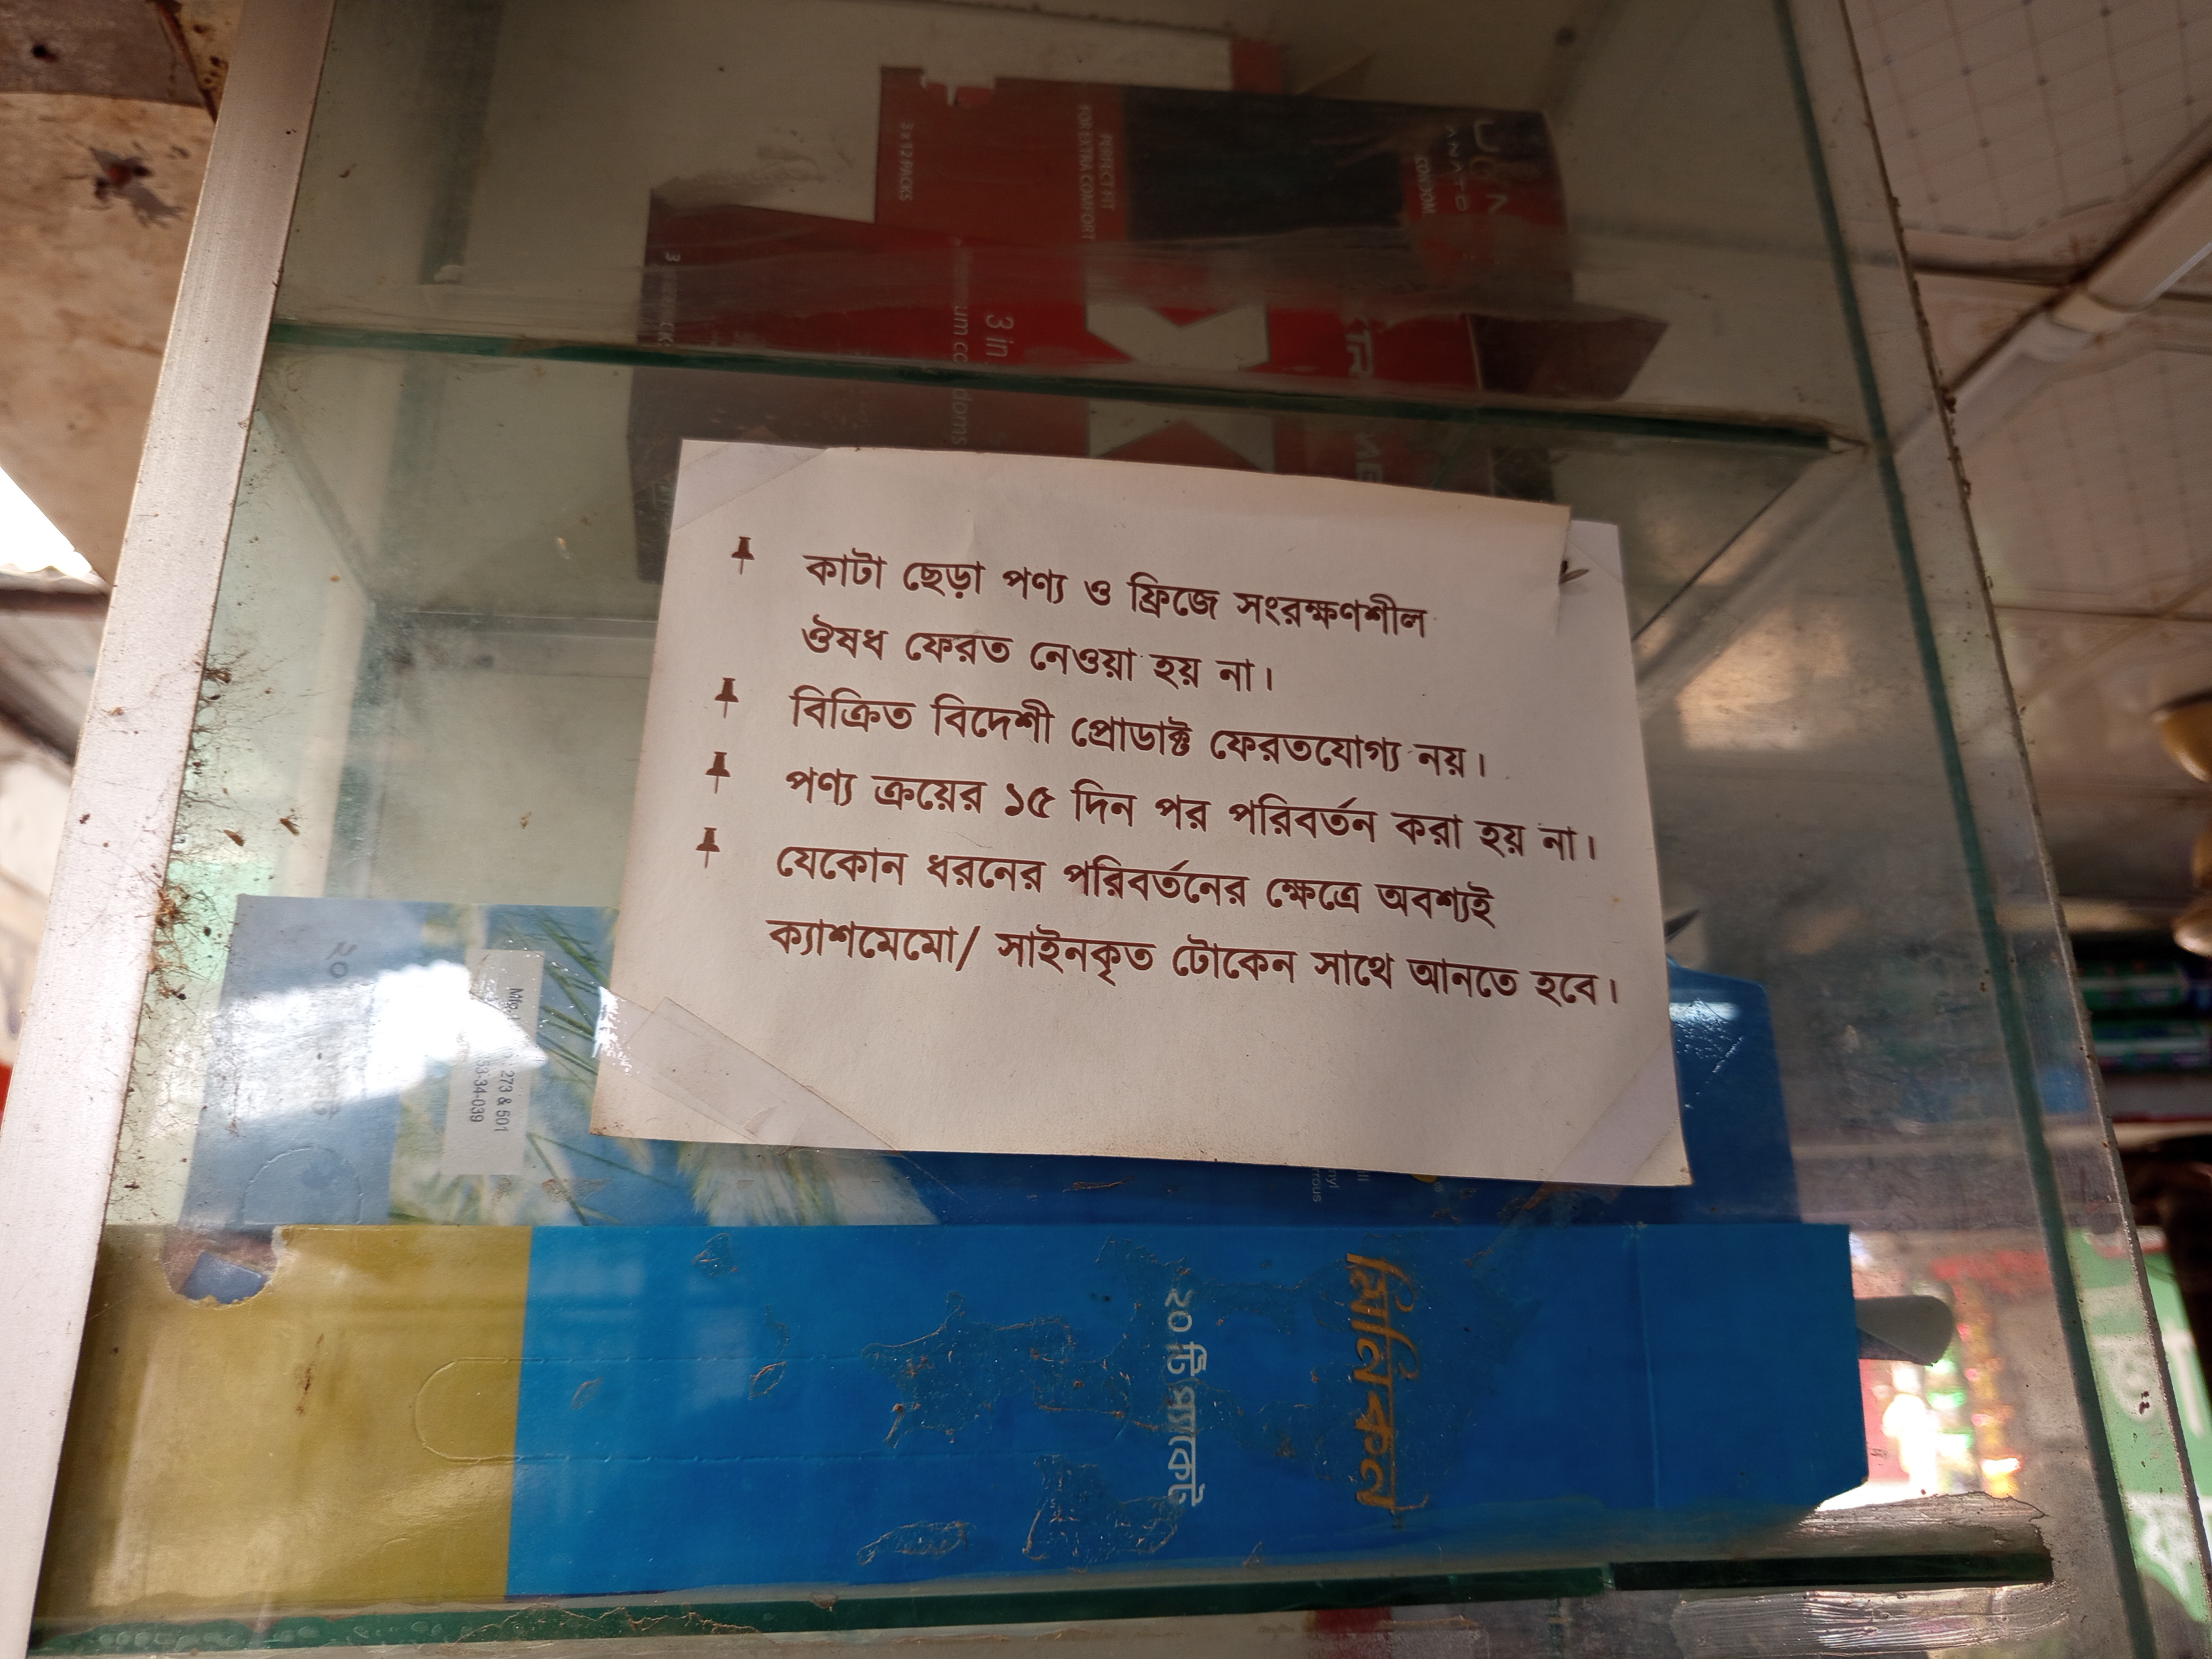 3 x 12 PACKS
PERFECT FIT
FOR EXTRA COMFORT
CONDOM
3 in
কাটা ছেড়া পণ্য ও ফ্রিজে সংরক্ষণশীল
ঔষধ ফেরত নেওয়া হয় না।
বিক্রিত বিদেশী প্রোডাক্ট ফেরতযোগ্য নয়।
পণ্য ক্রয়ের ১৫ দিন পর পরিবর্তন করা হয় না।
যেকোন ধরনের পরিবর্তনের ক্ষেত্রে অবশ্যই
ক্যাশমেমো/ সাইনকৃত টোকেন সাথে আনতে হবে।
273 & 501
২০ টি প্যাকেট
মিনিকন